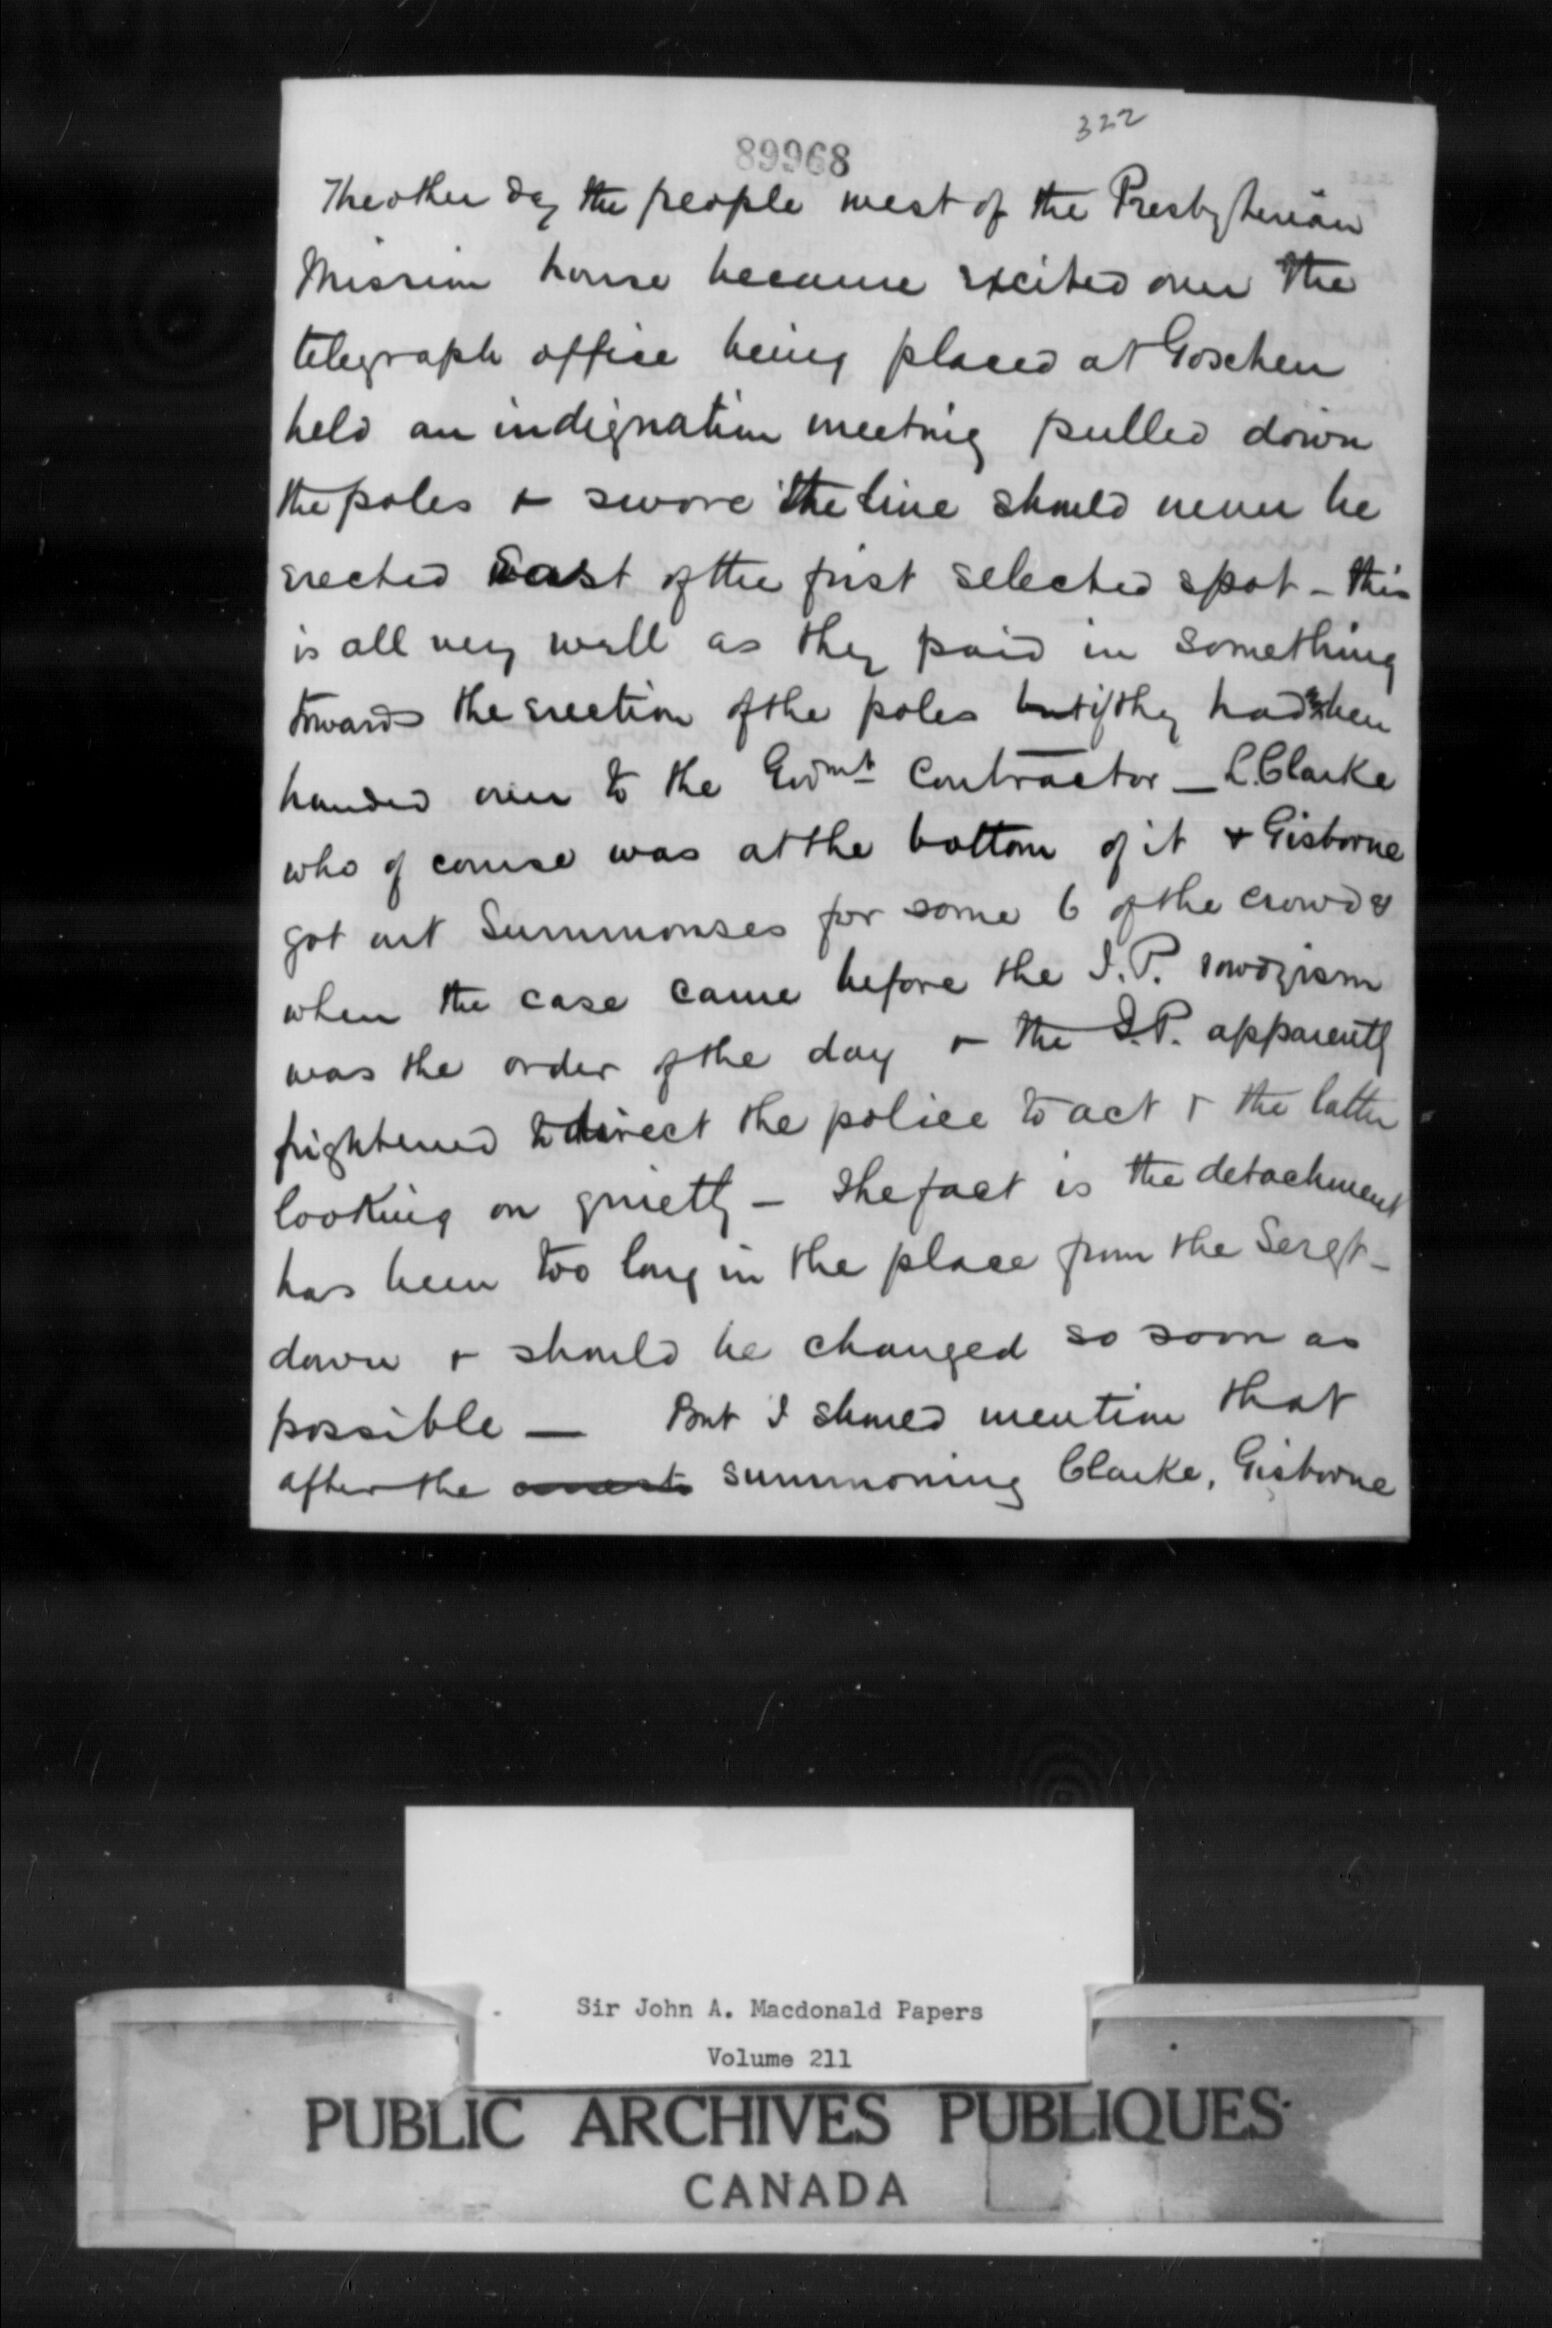 322
89968
The other day the people west of the Presbyterian
Mission house became excited over the
telegraph office being placed at Goschen
held an indignation meeting pulled down
the poles & swore the line should never be
erected East of the first selected spot - this
is all very well as they paid in something
towards the erection of the poles but if they had been
handed over to the Govmt Contractor - L. Clarke
who of course was at the bottom of it & Gisborne
got out Summonses for some 6 of the crowd &
when the case came before the J.P. rowdyism
was the order of the day & the J.P. apparently
frightened to direct the police to act & the latter
looking on quietly - The fact is the detachment
has been too long in the place from the Sergt -
down & should be changed so soon as
possible - But I should mention that
after the summoning Clarke, Gisborne
Sir John A. Macdonald Papers
Volume 211
PUBLIC ARCHIVES PUBLIQUES
CANADA